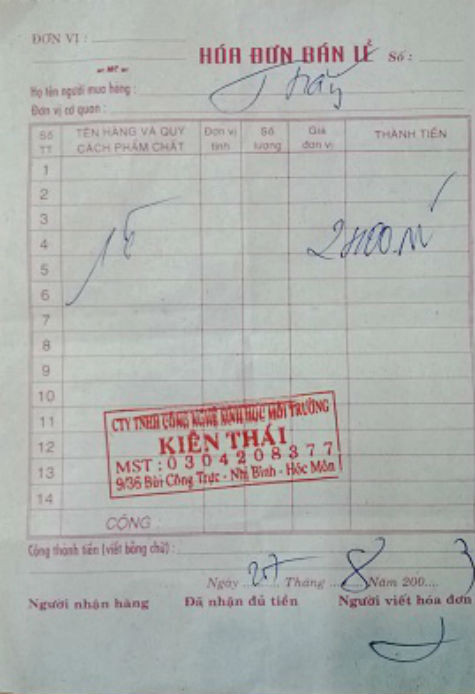 ĐƠN VỊ :
HÓA ĐƠN BÁN LẺ Số :
Họ tên người mua hàng :
Đơn vị cơ quan :
Số TT TÊN HÀNG VÀ QUY CÁCH PHẨM CHẤT Đơn vị tính Số lượng Giá đơn vị THÀNH TIỀN
1
2
3
4
5
6
7
8
9
10
11
12
13
14
CTY TNHH CÔNG NGHỆ SINH HỌC MÔI TRƯỜNG
KIÊN THÁI
MST : 0304208377
9/36 Bùi Công Trực - Nhị Bình - Hóc Môn
CỘNG :
Cộng thành tiền (viết bằng chữ) :
Ngày 27 Tháng 8 Năm 200.... 3
Người nhận hàng Đã nhận đủ tiền Người viết hóa đơn